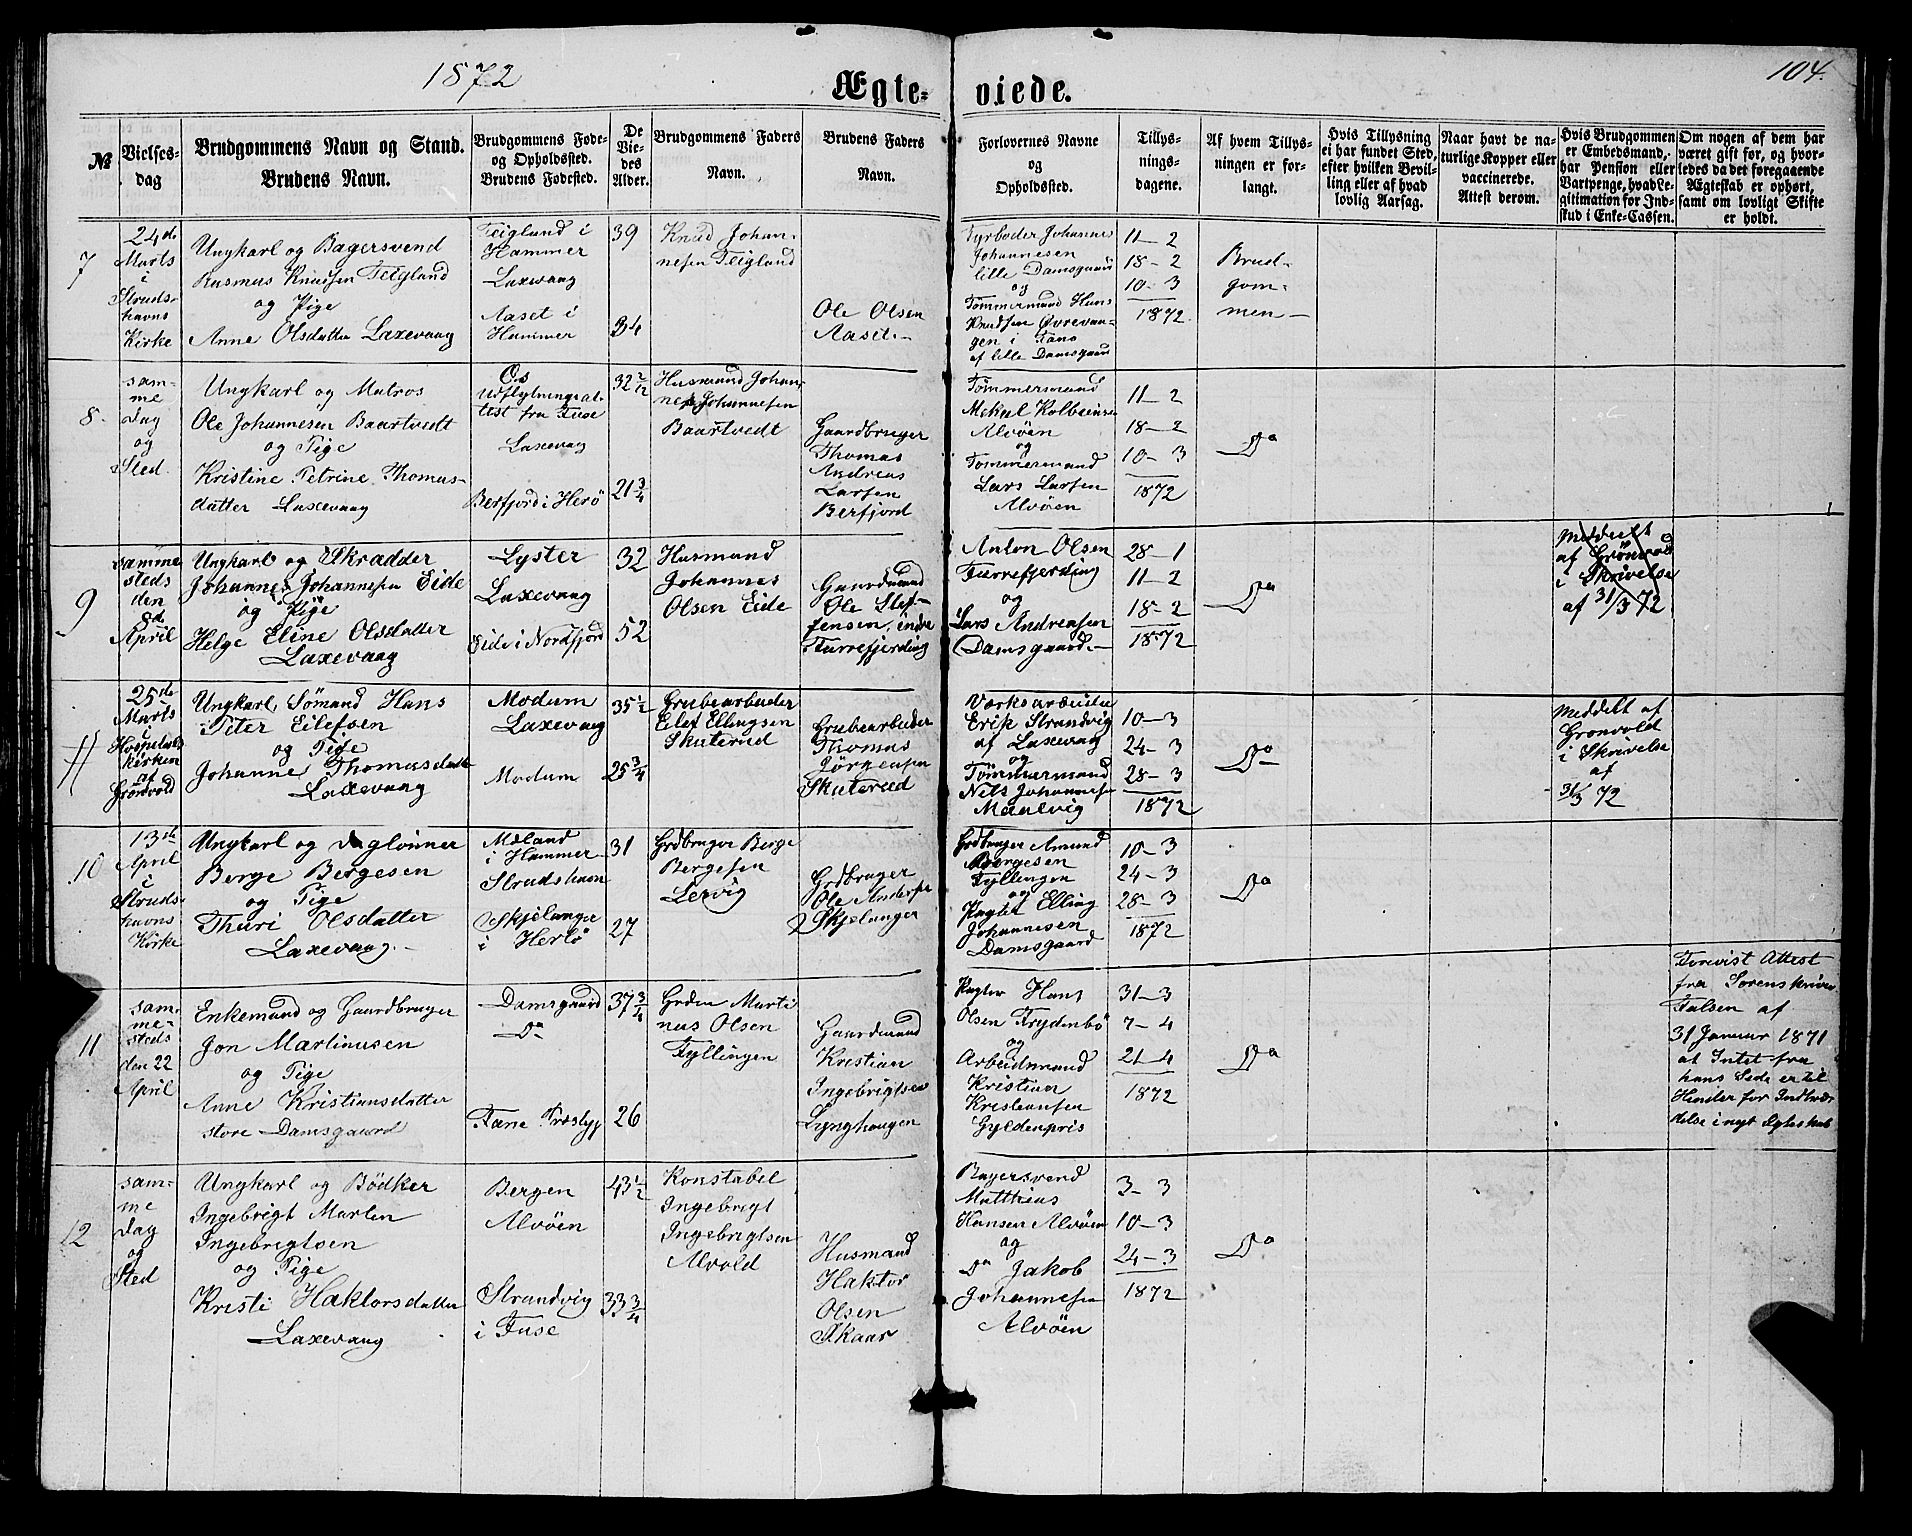 1872
Ægte- viede.
104.
№
Vielses-
dag
Brudgommens Navn og Stand.
Brudens Navn.
Brudgommens Føde-
og Opholdssted.
Brudens Fødested.
De
Vie-
des
Alder.
Brudgommens Faders
Navn.
Brudens Faders
Navn.
Forlovernes Navne
og
Opholdssted.
Tillys-
nings-
dagene.
Af hvem Tillys-
ningen er for-
langt.
Hvis Tillysning
ei har fundet Sted,
efter hvilken Bevil-
ling eller af hvad
lovlig Aarsag.
Naar havt de na-
turlige Kopper eller
vaccinerede.
Attest derom.
Hvis Brudgommen
er Embedsmand,
har Pension eller
Vartpenge, hvad Le-
gitimation for Ind-
skud i Enke-Cassen.
Om nogen af dem har
været gift før, og hvor-
ledes da det foregaaende
Ægteskab er ophørt,
samt om lovligt Skifte
er holdt.
7
24de
Marts
i
Struds-
havns
Kirke
Ungkarl og Bagersvend
Rasmus Knudsen Teigland
og Pige
Anne Olsdatter Laxevaag
Teigland i
Hammer
Laxevaag
Aaset i
Hammer
39
34
Knud Johan-
nesen Teigland
Ole Olsen
Aaset
Fyrbøder Johannes
Johannesen
lille Damsgaard
og
Tømmermand Hans
Knudsen Øvrevaa-
gen i Fane
af lille Damsgaard
11-2
18-2
10-3
1872
Brud-
gom-
men
8.
sam-
me
Dag
og
Sted.
Ungkarl og Matros
Ole Johannesen Baartvedt
og Pige
Kristine Petrine Thomas-
datter Laxevaag
Os
Udflytningsat-
test fra Fuse
Laxevaag
Berfjord i Herø
32 2/12
21 3/4
Husmand Johan-
nes Johannesen
Baartvedt
Gaardbruger
Thomas
Andreas
Larsen
Berfjord
Tømmermand
Mikal Kolbeinse
Alvøen
og
Tømmermand
Lars Larsen
Alvøen
11-2
18-2
10-3
1872
Do
9
samme
steds
den
8de
April
Ungkarl og Skrædder
Johannes Johannesen Eide
og Pige
Helge Eline Olsdatter
Laxevaag
Lyster
Laxevaag
Eide i Nordfjord
32
52
Husmand
Johannes
Olsen Eide
Gaardmand
Ole Stef-
fensen, indre
Furrefjerding
Anton Olsen
Furrefjerding
og
Lars Andreasen
Damsgaard
28-1
11-2
18-2
1872
Do
Meddelt
af Grönvold
i Skrivelse
af 31/3 72
25de
Marts
i
Hospitals
kirken
af
Grönvold
Ungkarl, Sømand Hans
Peter Eilefsen
og Pige
Johanne Thomasdatter
Laxevaag
Modum
Laxevaag
Modum
35 1/2
25 3/4
Grubearbeider
Eilef Ellingsen
Skuterud
Grubearbeider
Thomas
Jörgensen
Skuterud
Værksarbeider
Erik Strandvig
af Laxevaag
og
Tömmermand
Nels Johannesen
Maalvig
10-3
24-3
28-3
1872
Do
Meddelt af
Gronvold
i Skrivelse
af
31/3 72
10
13de
April
i
Struds-
havns
Kirke
Ungkarl og Daglönner
Berge Bergesen
og Pige
Thuri Olsdatter
Laxevaag.
Mæland
i Hammer
Strudshavn
Skjelanger
i Herlö
31
27
Grdbruger Berge
Bergesen
Lervig
Grdbruger
Ole Anderse
Skjelanger
Grdbruger Amund
Bergesen
Fyllingen
og
Pagter Elling
Johannesen
Damsgaard
10-3
24-3
28-3
1872
Do
11
sam-
me-
steds
den 22
April
Enkemand og Gaardbruger
Jon Martinusen
og Pige
Anne Kristiansdatter
store Damsgaard
Damsgaard
Do
Fane Præstgj
37 3/4
26
Grdm Marti
nus Olsen
Fyllingen
Gaardmand
Kristian
Ingebrigtsen
Lynghougen
Pagter Hans
Olsen Frydenbö
og
Arbeidsmand
Kristian
Kristiansen
Gyldenpris
31-3
7-4
21-4
1872
Do
Forevist Attest
fra Sorenskriver
Falsen af
31 Januar 1871
at Intet fra
hans Side er til
Hinder for Indtræ-
delse i nyt Ægteskab
12
sam-
me
Dag
og
Sted
Ungkarl og Bödker
Ingebrigt Marten
Ingebrigtsen
og Pige
Kristi Haktorsdatter
Laxevaag
Bergen
Alvöen
Strandvig
i Fuse
43 1/2
33 3/4
Konstabel
Ingebrigt
Ingebrigtsen
Alvold
Husmand
Haktor
Olsen
Skaar
Bagersvend
Matthias
Hansen Alvöen
og
Do Jakob
Johannesen
Alvöen
3-3
10-3
24-3
1872
Do